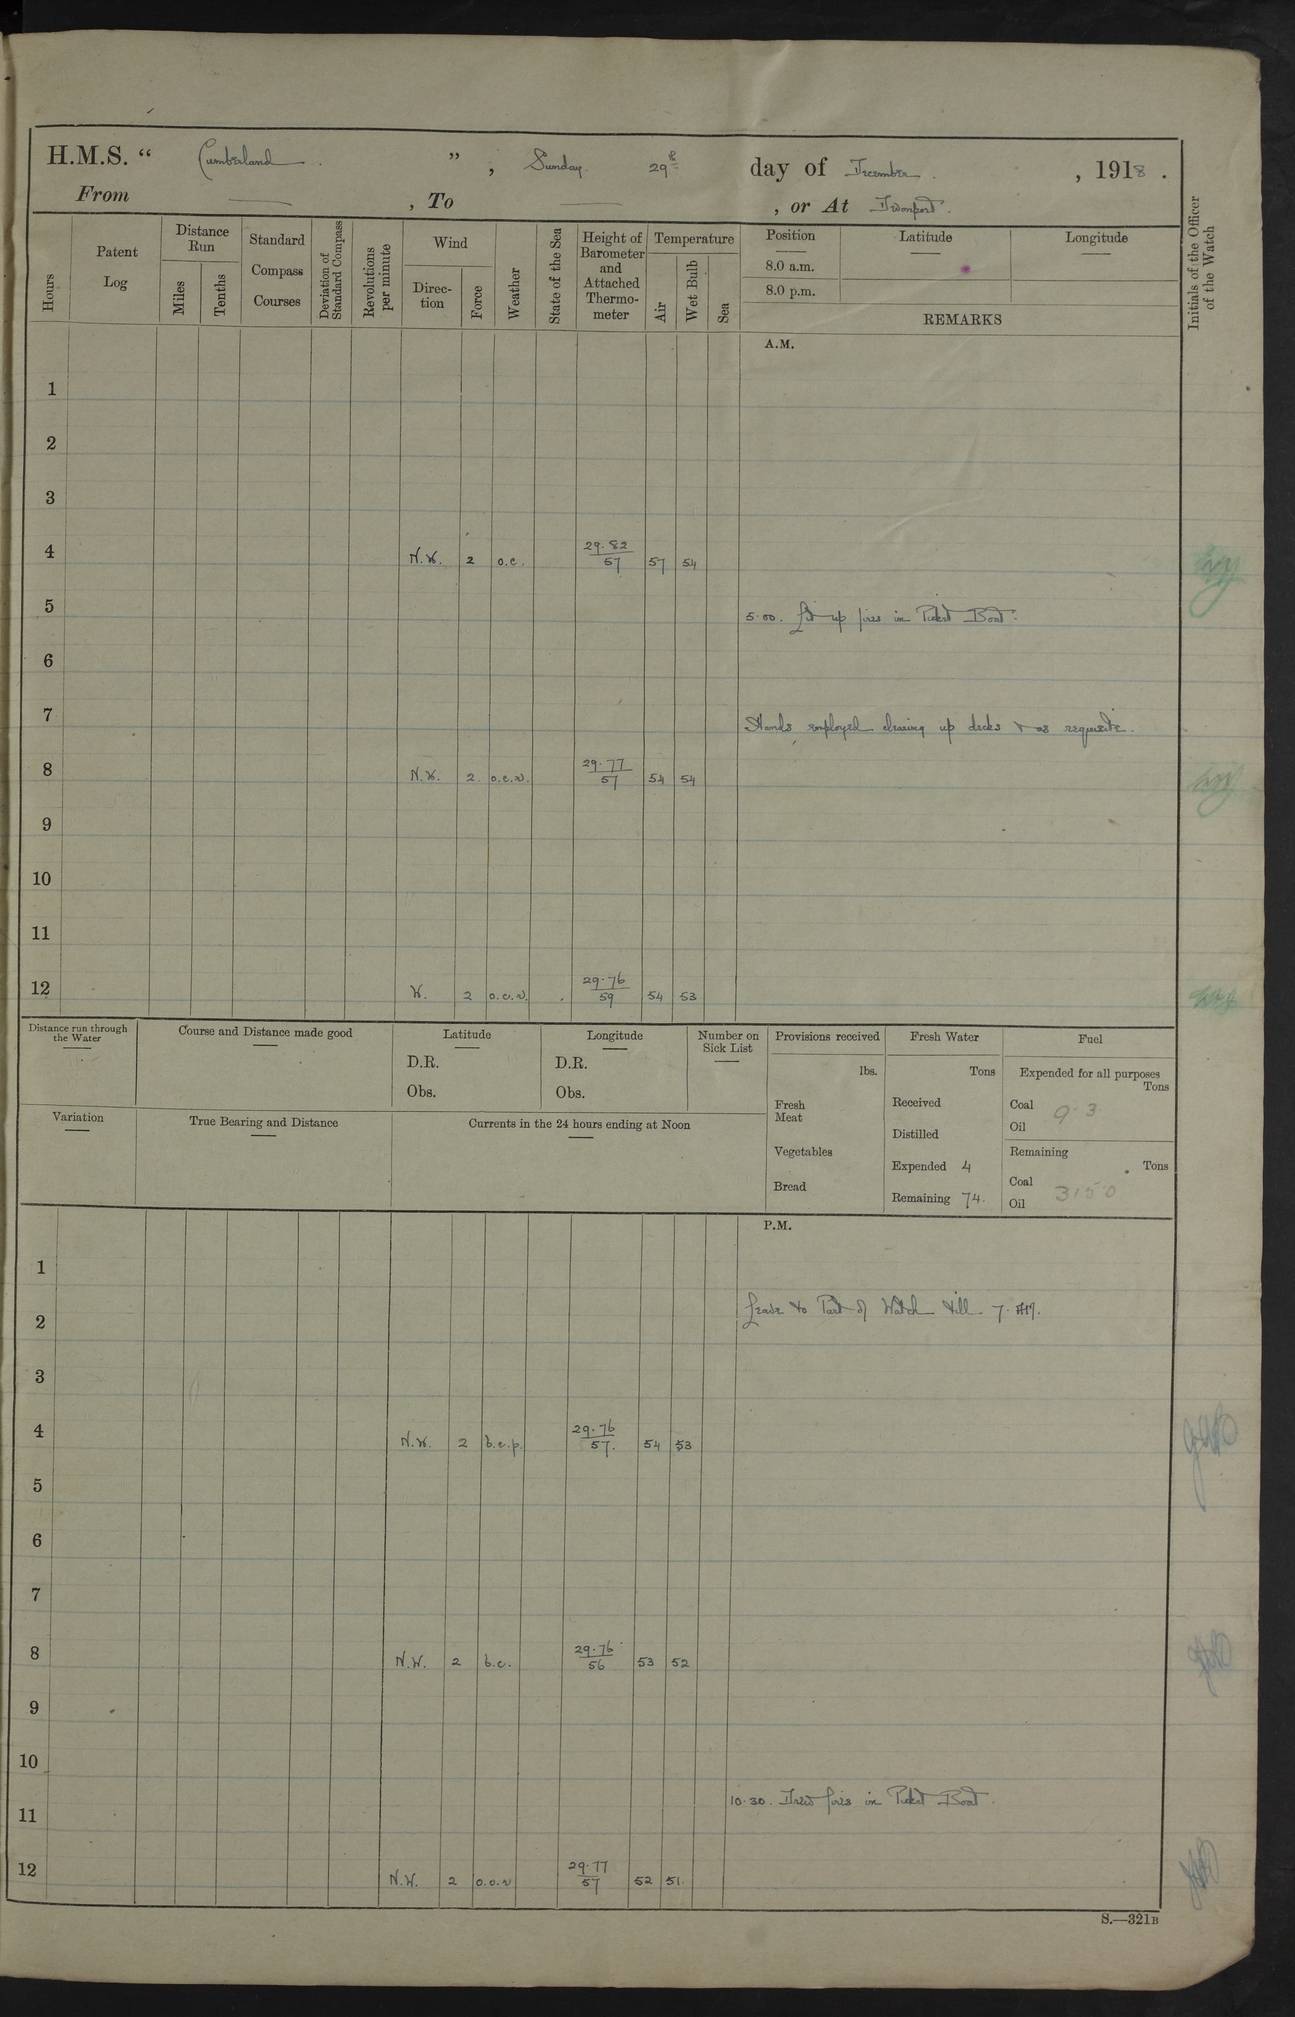 H.M.S. " Cumberland . " , Sunday 29th day of December . , 1918 .
From — , To — , or At Devonport .
Hours
Patent Log
Distance Run
Miles
Tenths
Standard Compass Courses
Deviation of Standard Compass
Revolutions per minute
Wind
Direc-tion
Force
Weather
State of the Sea
Height of Barometer and Attached Thermo-meter
Temperature
Air
Wet Bulb
Sea
Position Latitude Longitude
8.0 a.m.
8.0 p.m.
REMARKS
Initials of the Officer of the Watch
A.M.
1
2
3
4 N.W. 2 o.c. 29.82/57 57 54
5 5.00. Lit up fires in Picket Boat.
6
7 Hands employed clearing up decks & as requisite.
8 N.W. 2 o.c.r. 29.77/57 54 54
9
10
11
12 W. 2 o.c.r. 29.76/59 54 53
Distance run through the Water
Course and Distance made good
Latitude
D.R.
Obs.
Longitude
D.R.
Obs.
Number on Sick List
Provisions received
lbs.
Fresh Meat
Vegetables
Bread
Fresh Water
Tons
Received
Distilled
Expended 4
Remaining 74.
Fuel
Expended for all purposes
Tons
Coal 9.3
Oil
Remaining
Tons
Coal 3150
Oil
Variation
True Bearing and Distance
Currents in the 24 hours ending at Noon
P.M.
1
2 Leave to Part of Watch till 7. AM.
3
4 N.W. 2 b.c.p. 29.76/57. 54 53
5
6
7
8 N.W. 2 b.c. 29.76/56 53 52
9
10
11 10.30. Drew fires in Picket Boat.
12 N.W. 2 o.c.r 29.77/57 52 51.
S.—321B